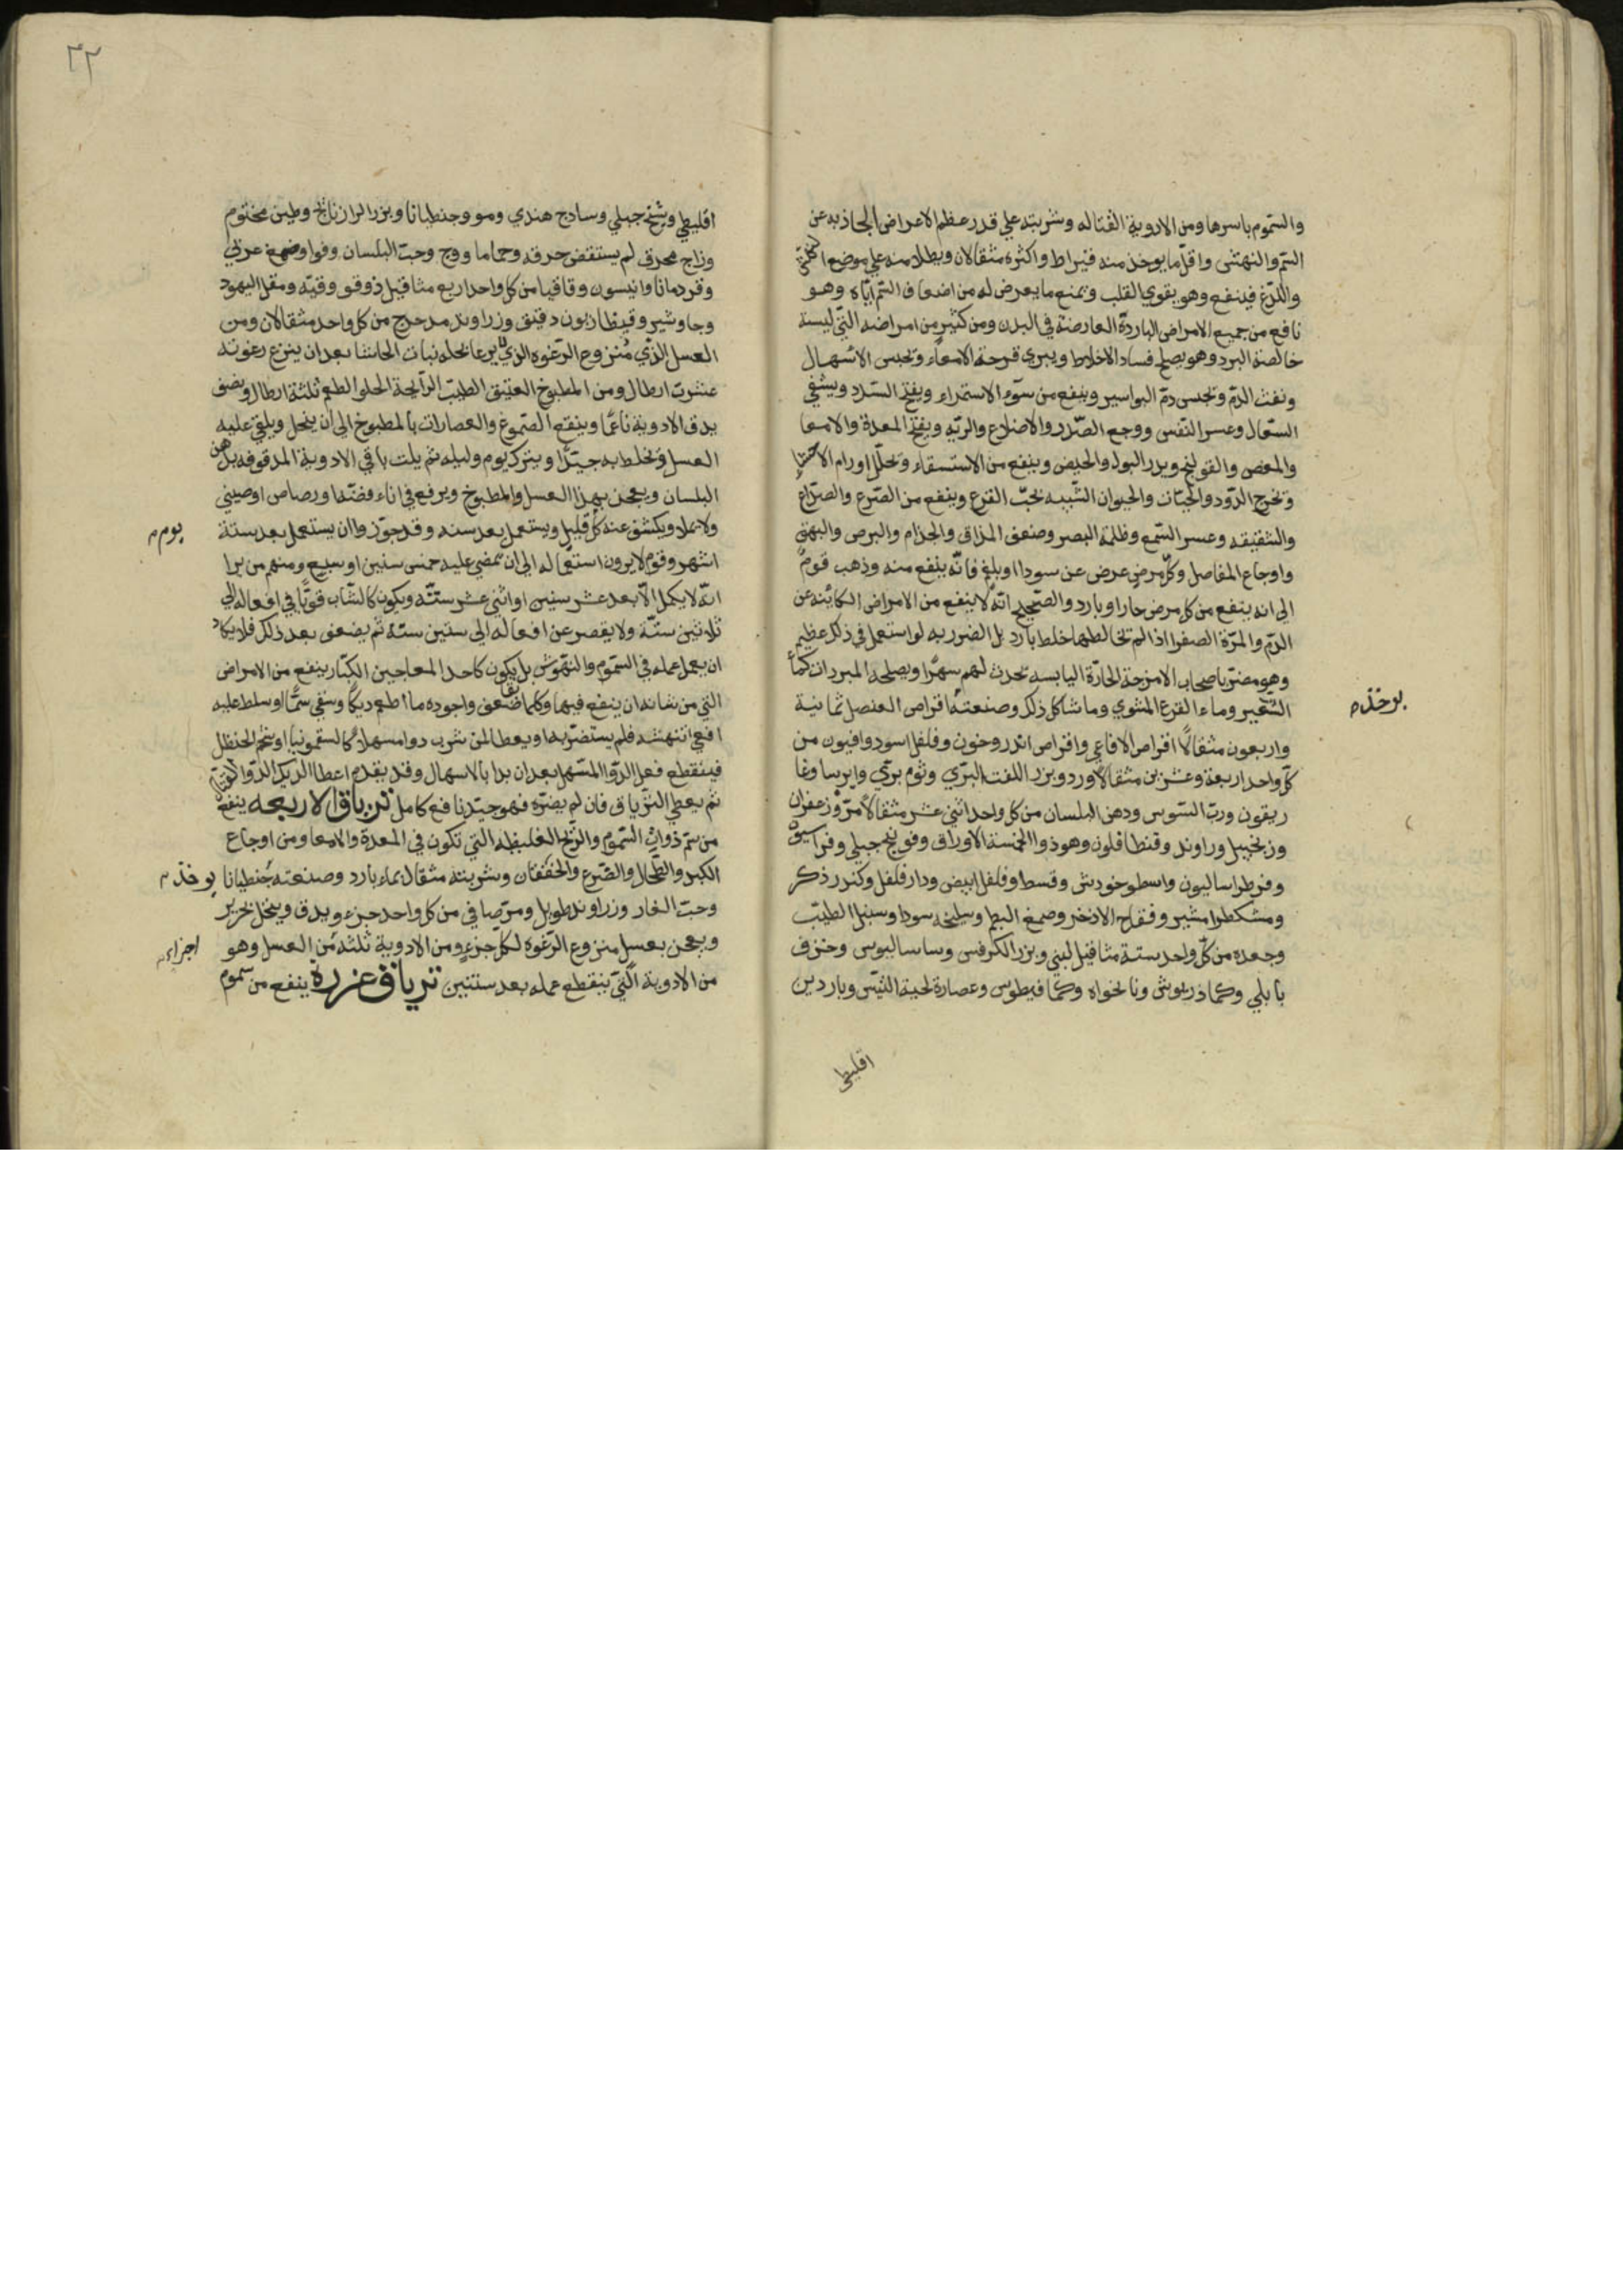 والسموم باسرها ومن الادوية القتاله وشربته على قدر عظم الاعراض الحادثه عن
السم والنهش واقل ما يوخذ منه قيراط واكثره مثقالان ويطلا منه على موضع
واللدغ فينفع وهو يقوي القلب ويمنع ما يعرض له من اضعاف السم اياه وهو
نافع من جميع الامراض الباردة العارضة في البدن ومن كثير من امراضه التي ليسة
خالصة البرد وهو يصلح فساد الاخلاط ويبري قرحة الامعاء ويحبس الاسهال
ونفث الدم ويحبس دم البواسير وينفع من سوء الاستمراء ويفتح السدد ويشفي
السعال وعسر النفس ووجع الصدر والاضلاع والريه وينفخ المعدة والامعا
والمغص والقولنج ويدر البول والحيض وينفع من الاستسقاء ويحلل اورام الاحشا
ويخرج الدود والحيات والحيوان الشبيه بحب القرع وينفع من الصرع والصداع
والشقيقه وعسر السمع وظلمة البصر وضعف المذاق والجذام والبرص والبهق
واوجاع المفاصل وكل مرض عرض عن سودا او بلغم فانه ينفع منه وذهب قوم
الى انه ينفع من كل مرض حار او بارد والصحيح انه لا ينفع من الامراض الكائنه عن
الدم والمرة الصفرا اذا لم تخالطها خلط بارد بل الضرر به لو استعمل في ذلك عظيم
وهو مضر باصحاب الامزجة الحارة اليابسه يحدث لهم سهرا ويصلحه المبردات كماء
الشعير وماء القرع المشوي وما شاكل ذلك وصنعته اقراص العنصل ثمانية
يوخذ
واربعون مثقالا اقراص الافاعي واقراص اندروخون وفلفل اسود وافيون من
كل واحد اربعة وعشرين مثقالا ورد وبزر اللفت البري وثوم بري وايرسا وغا
ريقون ورب السوس ودهن البلسان من كل واحد اثني عشر مثقالا مر وزعفران
وزنجبيل وراوند وقنطافلون وهو ذو الخمسة الاوراق وفوتنج جبلي وفراسيون
وفرطراساليون واسطوخودس وقسط وفلفل ابيض ودار فلفل وكندر ذكر
ومشكطرامشير وفقاح الاذخر وصمغ البطم وسليخه سودا وسنبل الطيب
وجعده من كل واحد ستة مثاقيل لبني وبزر الكرفس وساساليوس وحرف
بابلي وكماذريوش ونانخواه وكمافيطوس وعصارة لحية التيس وناردين
اقليطي
٢٢
اقليطي وشيح جبلي وسادج هندي ومو وجنطيانا وبزر الرازيانج وطين مختوم
وزاج محرق لم يستقض حرقه وحماما ووج وحب البلسان وفوا وصمغ عربي
وقردمانا وانيسون وقاقيا من كل واحد اربع مثاقيل ذوقو وقنه ومقل اليهود
وجاوشير وقنطاريون دقيق وزراوند مدحرج من كل واحد مثقالان ومن
العسل الذي منزوع الرغوه الذي يرعا نحله نبات الحاشا بعد ان ينزع رغوته
عشرت ارطال ومن المطبوخ العتيق الطيب الرايحة الحلو الطعم ثلثة ارطال ونصف
يدق الادوية ناعما وينقع الصموغ والعصارات بالمطبوخ الى ان ينحل ويلقى عليه
العسل ويخلط به جيدا ويترك يوم وليله ثم يلت باقي الادوية المدقوقه بدهن
البلسان ويعجن بهذا العسل والمطبوخ ويرفع في اناء فضه او رصاص او صيني
ولا يملا ويكشف عنه كل قليل ويستعمل بعد سنه وقد جوزوا ان يستعمل بعد ستة
يوم
اشهر وقوم لا يرون استعماله الى ان تمضي عليه خمس سنين او سبع ومنهم من يرا
انه لا يكمل الا بعد عشر سنين او اثني عشر سنة ويكون كالشاب قويا في افعاله الى
ثلاثين سنة ولا يقصر عن افعاله الى ستين سنة ثم يضعف بعد ذلك فلا يكاد
ان يعمل عمله في السموم والنهوش بل يكون كاحد المعاجين الكبار ينفع من الامراض
التي من شانه ان ينفع فيها وكلما ضعف واجوده ما اطعم ديكا وسقي سما او سلط عليه
افعى اتنهشه فلم يستضر به او يعطا لمن شرب دوا مسهلا كالسقمونيا او شحم الحنظل
فينقطع فعل الدوا المسهل بعد ان بدا بالاسهال وقد يقدم اعطا الديك الدوا القتال
ثم يعطى الترياق فان لم يضره فهو جيد نافع كامل ترياق الاربعه ينفع
من سم ذوات السموم والريح الغليظه التي تكون في المعدة والامعا ومن اوجاع
الكبد والطحال والصرع والخفقان وشربته مثقال بماء بارد وصنعته جنطيانا
يوخذ
وحب الغار وزراوند طويل ومر صافي من كل واحد جزء ويدق وينخل بحرير
ويعجن بعسل منزوع الرغوه لكل جزء ومن الادوية ثلثه من العسل وهو
اجزاء
من الادوية التي ينقطع عمله بعد سنتين ترياق عزرة ينفع من سموم